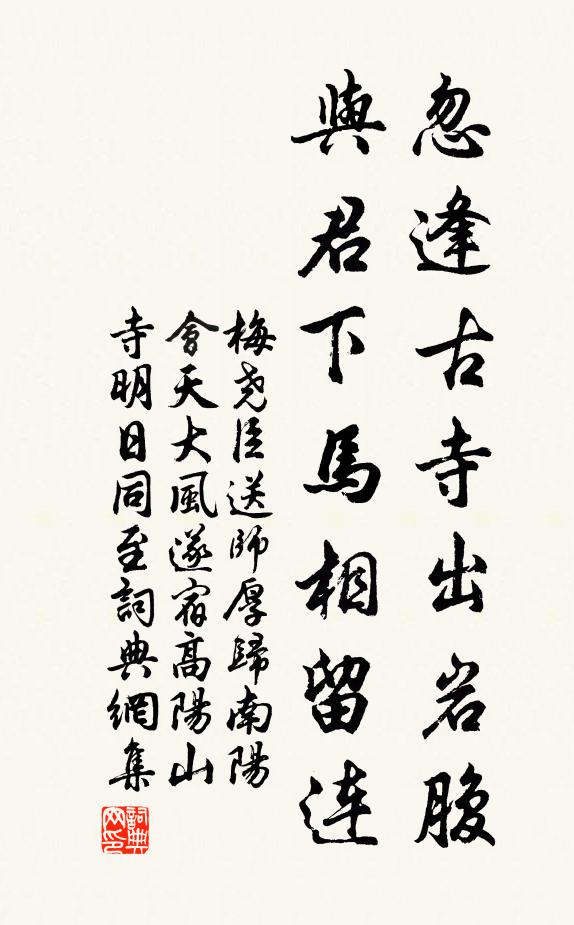 忽逢古寺出岩腹
與君下馬相留連
梅尧臣送師厚歸南陽
會天大風遂宿高陽山
寺明日同至詞典網集
詞典网印